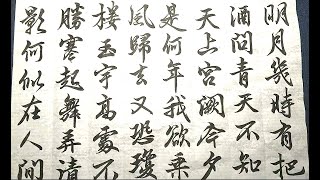 明月幾時有把
酒問青天不知
天上宮闕今夕
是何年我欲乘
風歸去又恐瓊
樓玉宇高處不
勝寒起舞弄清
影何似在人間